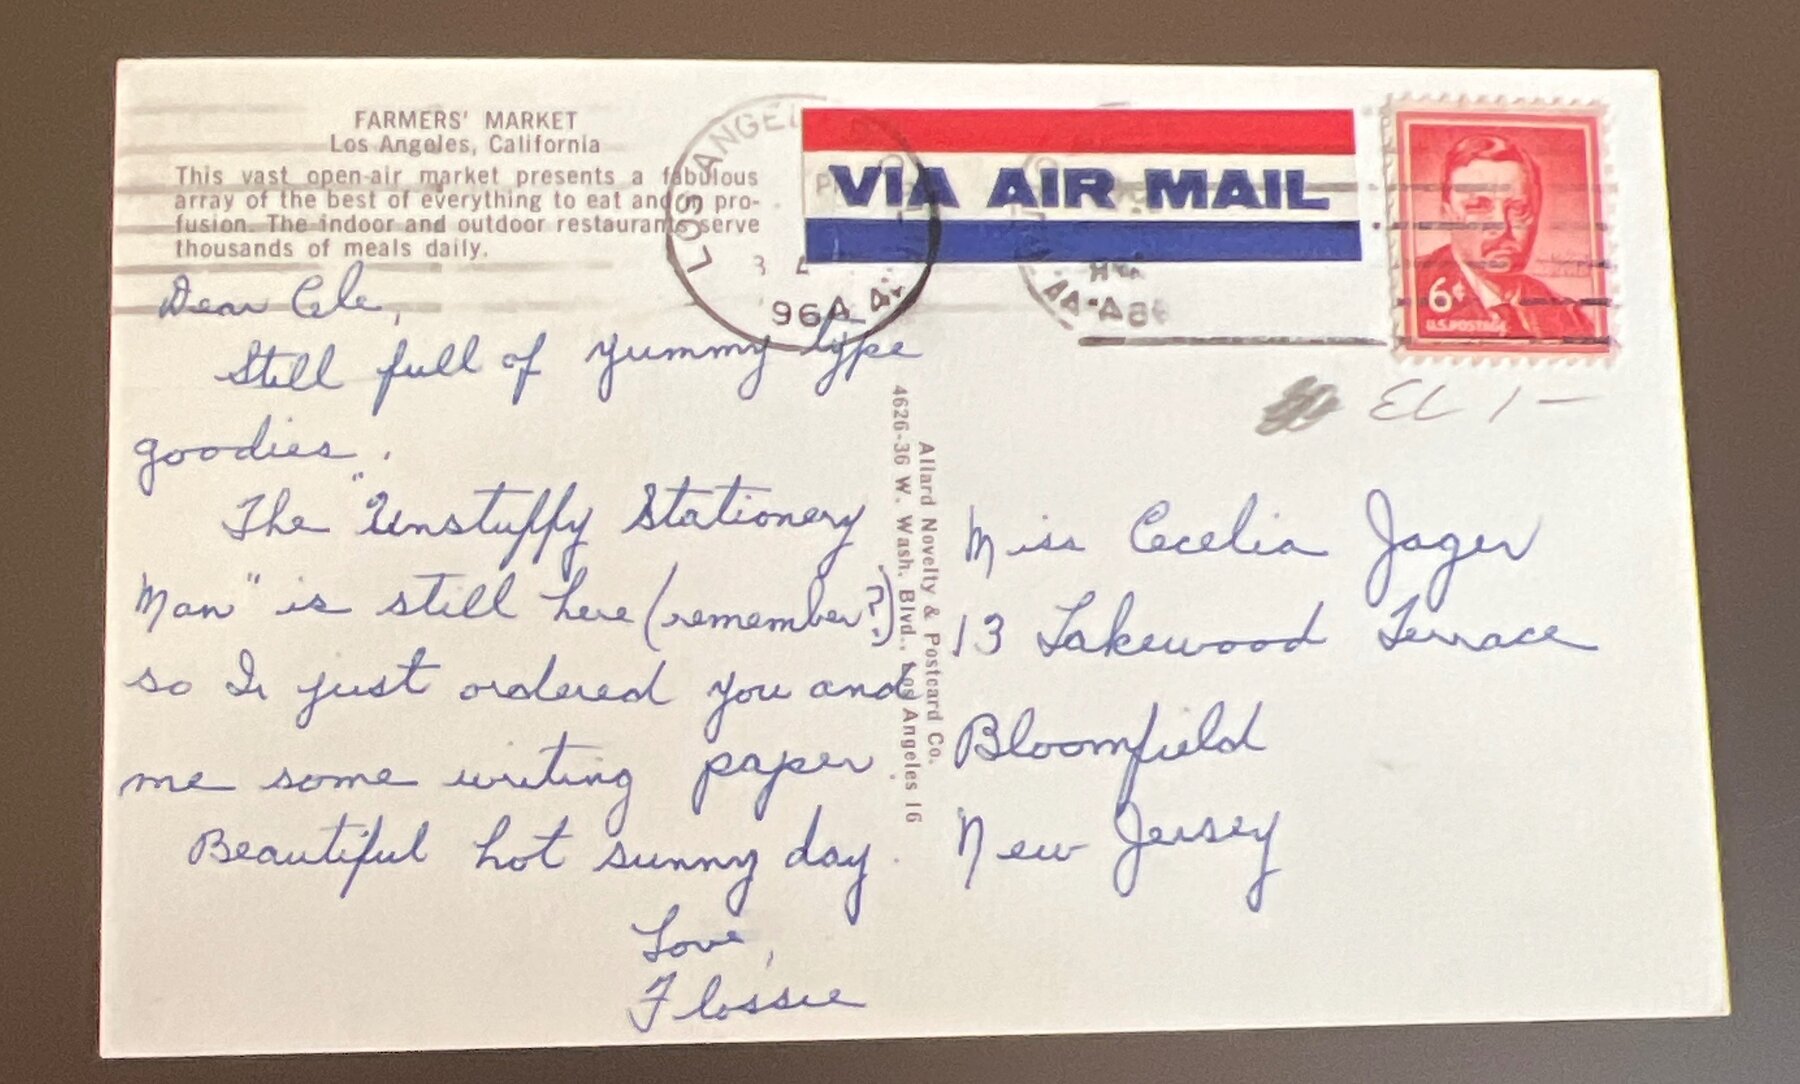 FARMERS' MARKET
Los Angeles, California
This vast open-air market presents a fabulous
array of the best of everything to eat and in pro-
fusion. The indoor and outdoor restaurants serve
thousands of meals daily.
LOS ANGEL
VIA AIR MAIL
6¢
U.S. POSTAGE
Dear Cele,
Still full of yummy type
goodies.
The "Unstuffy Stationery
Man" is still here (remember?)
so I just ordered you and
me some writing paper
Beautiful hot sunny day.
Love,
Flossie
Allard Novelty & Postcard Co.
4626-36 W. Wash. Blvd., Los Angeles 16
EC 1-
Miss Cecelia Jager
13 Lakewood Terrace
Bloomfield
New Jersey